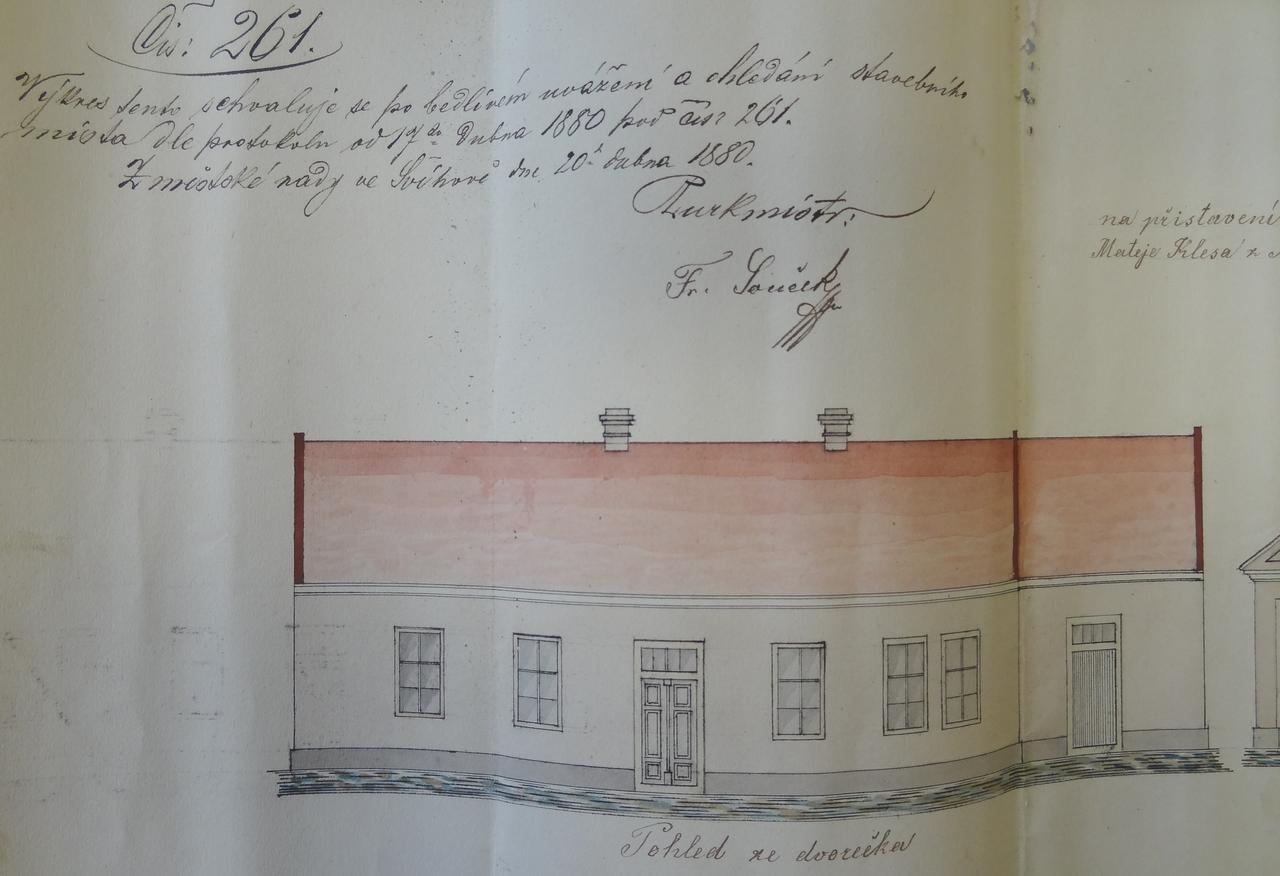 Čís: 261.
Výkres tento schvaluje se po bedlivém uvážení a ohledání stavebního
místa dle protokolu od 17ho dubna 1880 pod čís: 261.
Z městské rady ve Švihově dne 20ho dubna 1880.
Purkmistr:
Fr. Souček
na přistavení
Mateje Klesa z
Pohled ze dvorečka